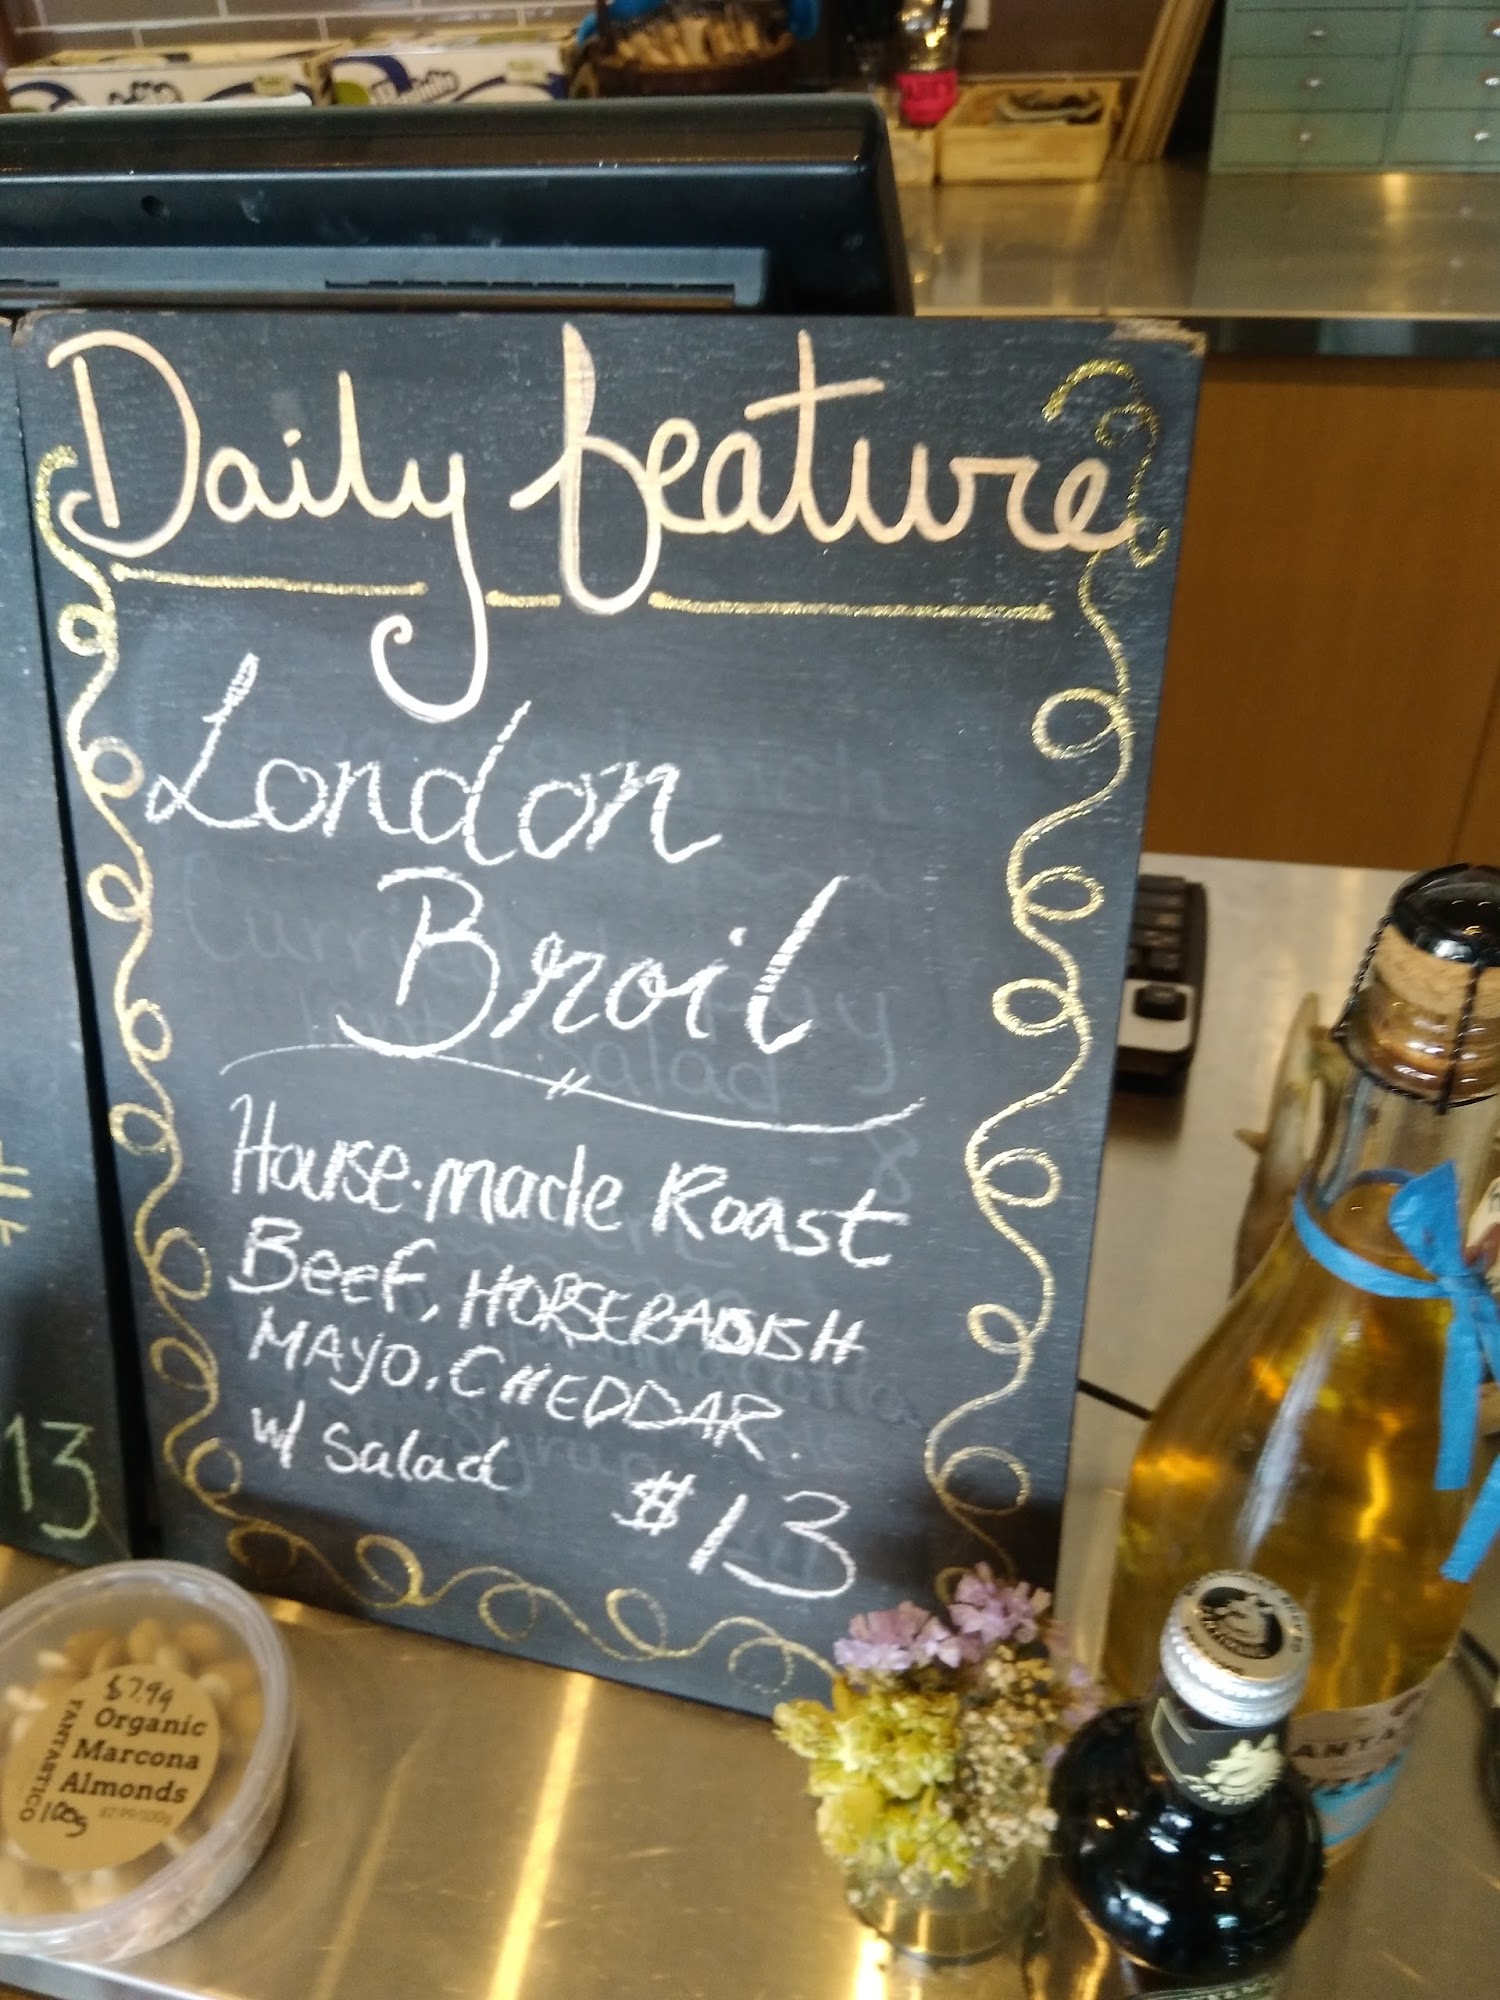 Daily feature
London
Broil
House-made Roast
Beef, HORSERADISH
MAYO, CHEDDAR.
w/ Salad
$13
13
$7.99
Organic
Marcona
Almonds
FANTASTICO
100g
$7.99/100g